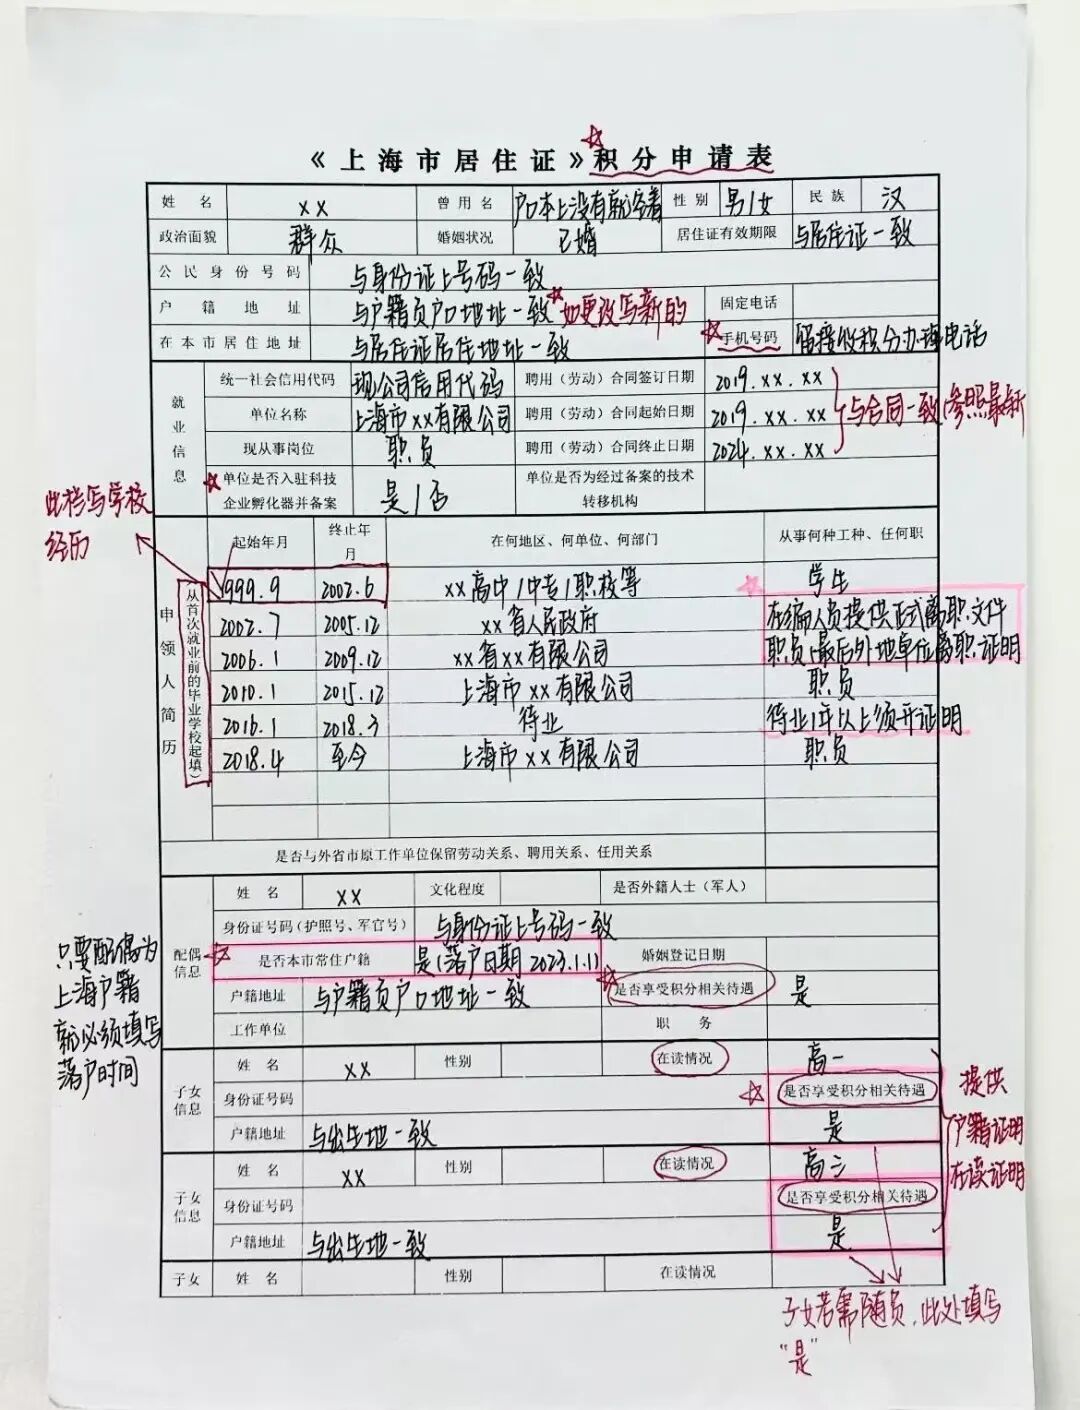 《上海市居住证》积分申请表
姓 名 xx 曾用名 户口本上没有就空着 性别 男/女 民族 汉
政治面貌 群众 婚姻状况 已婚 居住证有效期限 与居住证一致
公民身份号码 与身份证上号码一致
户籍地址 与户籍页户口地址一致 如更改写新的 固定电话
在本市居住地址 与居住证居住地址一致 手机号码 留接收积分办理电话
就业信息
统一社会信用代码 现公司信用代码 聘用（劳动）合同签订日期 2019.xx.xx
单位名称 上海市xx有限公司 聘用（劳动）合同起始日期 2019.xx.xx 与合同一致(参照最新
现从事岗位 职员 聘用（劳动）合同终止日期 2024.xx.xx
单位是否入驻科技企业孵化器并备案 是/否 单位是否为经过备案的技术转移机构
此栏写学校
经历
申领人简历
（从首次就业前的毕业学校起填）
起始年月 终止年月 在何地区、何单位、何部门 从事何种工种、任何职
1999.9 2002.6 xx高中/中专/职校等 学生
2002.7 2005.12 xx省人民政府 在编人员提供正式离职文件
2006.1 2009.12 xx省xx有限公司 职员,最后外地单位离职证明
2010.1 2015.12 上海市xx有限公司 职员
2016.1 2018.3 待业 待业1年以上须开证明
2018.4 至今 上海市xx有限公司 职员
是否与外省市原工作单位保留劳动关系、聘用关系、任用关系
配偶信息
姓 名 xx 文化程度 是否外籍人士（军人）
身份证号码(护照号、军官号) 与身份证上号码一致
是否本市常住户籍 是(落户日期 2023.1.1) 婚姻登记日期
户籍地址 与户籍页户口地址一致 是否享受积分相关待遇 是
工作单位 职 务
只要配偶为
上海户籍
就必须填写
落户时间
子女信息
姓 名 xx 性别 在读情况 高一
身份证号码 是否享受积分相关待遇
户籍地址 与出生地一致 是
提供
户籍证明
在读证明
子女信息
姓 名 xx 性别 在读情况 高三
身份证号码 是否享受积分相关待遇
户籍地址 与出生地一致 是
子女 姓 名 性别 在读情况
子女若需随员,此处填写
"是"